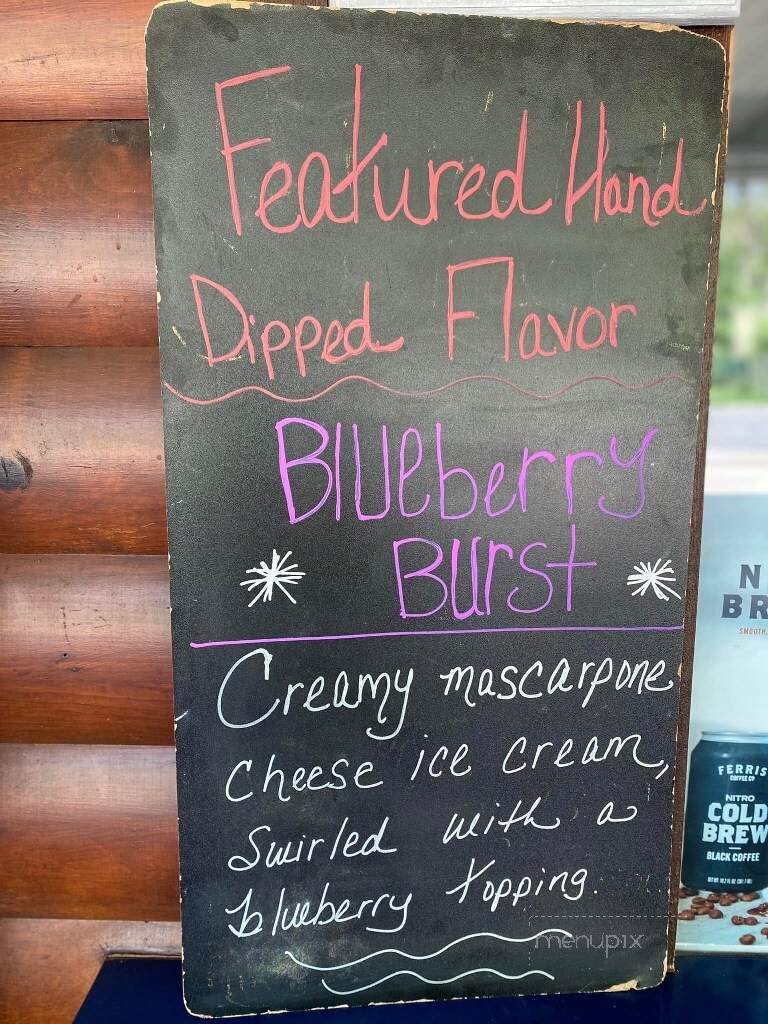 Featured Hand
Dipped Flavor
Blueberry
Burst
Creamy mascarpone
Cheese ice cream,
Swirled with a
blueberry topping.
menupix
N
BR
SMOOTH.
FERRIS
COFFEE CO
NITRO
COLD
BREW
BLACK COFFEE